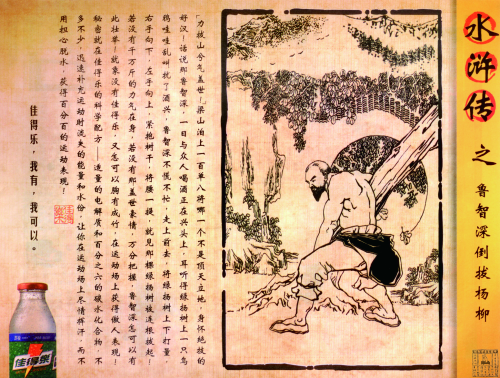 水浒传
之
鲁智深倒拔杨柳
力拔山兮气盖世！梁山泊上一百单八将哪一个不是顶天立地、身怀绝技的
好汉！话说那鲁智深，一日与众人喝酒正在兴头上，耳听得绿杨树上一只乌
鸦哇哇乱叫扰了酒兴，鲁智深不慌不忙，走上前去，将绿杨树上下打量，
右手向下，左手向上，紧抱树干，将腰一提，就见那棵绿杨树被连根拔起！
若没有千万斤的力气在身，若没有那盖世豪情，万分把握，鲁智深怎可以有
此壮举！就象没有佳得乐，又怎可以胸有成竹，在运动场上获得傲人表现！
秘密就在佳得乐的科学配方——适量的电解质和百分之六的碳水化合物，不
多不少，迅速补充运动时流失的能量和水份，让你在运动场上尽情挥汗，而不
用担心脱水，获得百分百的运动表现！
佳得乐，我有，我可以。
佳得乐